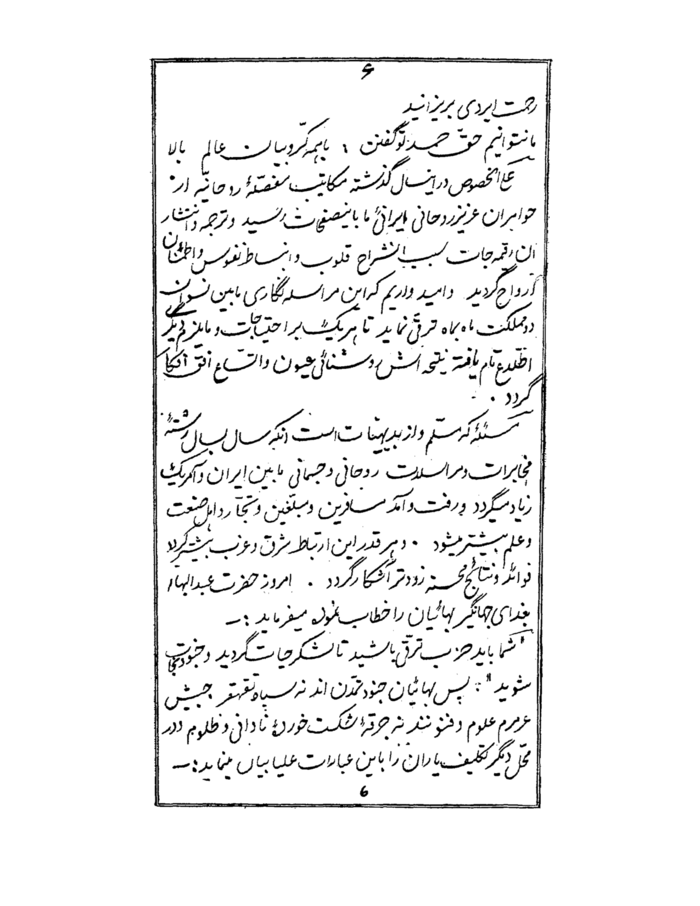 ۶
رحمت ایزدی بریزانید
ما نتوانیم حق حمد تو گفتن ؛ با همه کروبیان عالم بالا
علی الخصوص در اینسال گذشته مکاتیب مفصله روحانیه از
خواهران عزیز روحانی ایرانی ما باینصفحات رسید و ترجمه و انتشار
آن رقیمه جات سبب انشراح قلوب و انبساط نفوس و اطمنان
ارواح گردید و امید واریم که این مراسله نگاری ما بین نسوان
دو مملکت ماه بماه ترقی نماید تا هر یک بر احتیاجات و مایلزم دیگر
اطلاع تام یافته نتیجه اش روشنائی عیون و اتساع افق افکار
گردد .
مسئلۀ که مسلم و از بدیهیات است آنکه سال بسال رشتۀ
مخابرات و مراسلات روحانی و جسمانی ما بین ایران و آمریک
زیاد میگردد و رفت و آمد مسافرین و مبلغین و تجار و اهل صنعت
و علم بیشتر میشود . و هر قدر این ارتباط شرق و غرب بیشتر گردد
فوائد و نتائج محسنه زودتر آشکار گردد . امروز حضرت عبدالبهاء
بندای جهانگیر بهائیان را خطاب نموده میفرماید :ـ
"شما باید حزب ترقی باشید تا لشکر حیات گردید و جنود نجات
شوید" : پس بهائیان جنود تمدن اند نه سپاه تقهقر جیش
عرمرم علوم و فنونند نه جرقۀ شکست خوردۀ نادانی و ظلوم و در
محل دیگر تکلیف یاران را باین عبارات علیا بیان مینماید :ـ
6